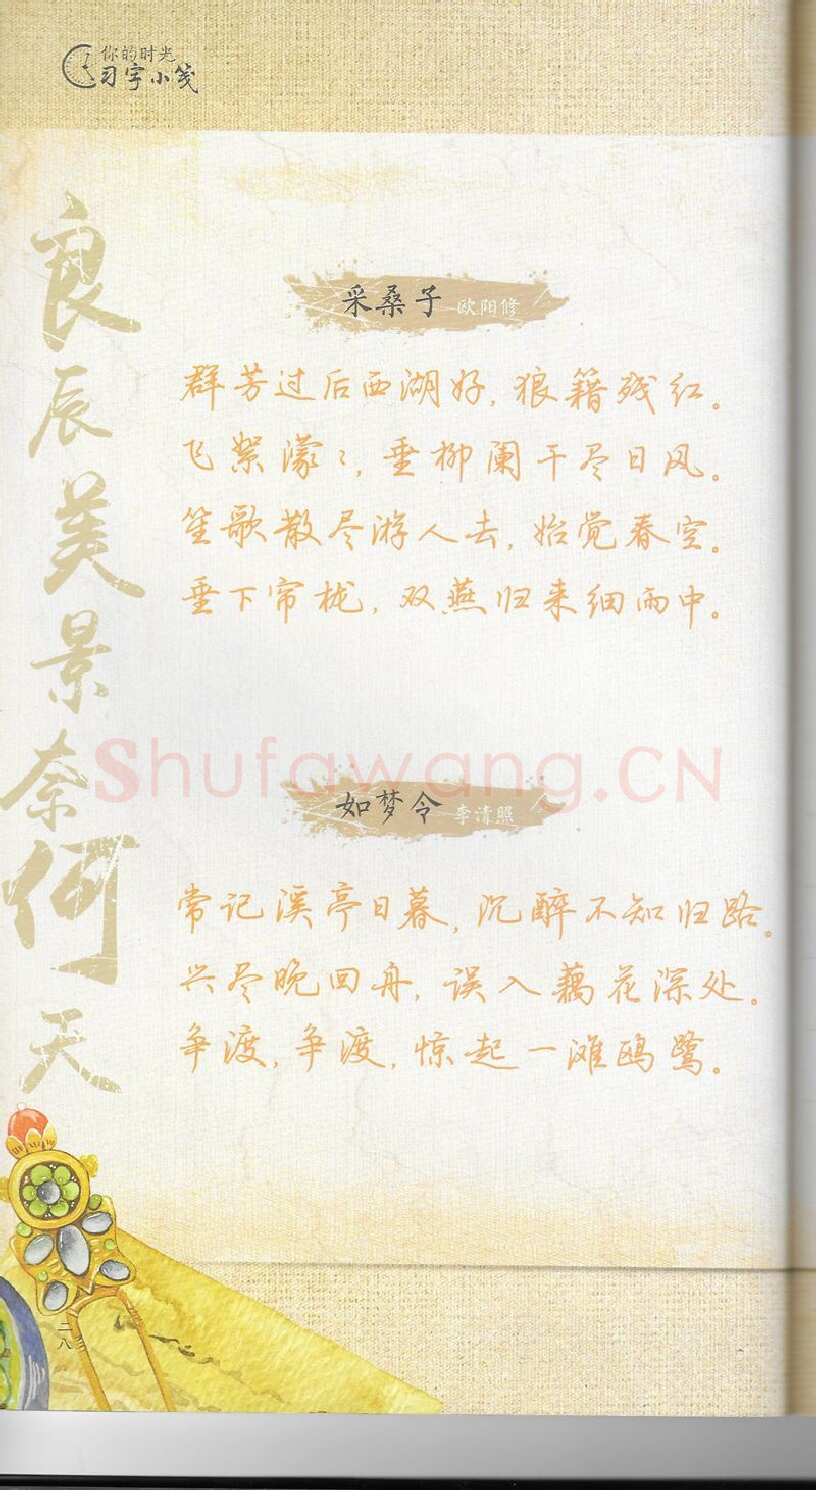 你的时光
习字小笺
良辰美景奈何天
采桑子 欧阳修
群芳过后西湖好，狼籍残红。
飞絮濛々，垂柳阑干尽日风。
笙歌散尽游人去，始觉春空。
垂下帘栊，双燕归来细雨中。
Shufawang.CN
如梦令 李清照
常记溪亭日暮，沉醉不知归路。
兴尽晚回舟，误入藕花深处。
争渡，争渡，惊起一滩鸥鹭。
二八